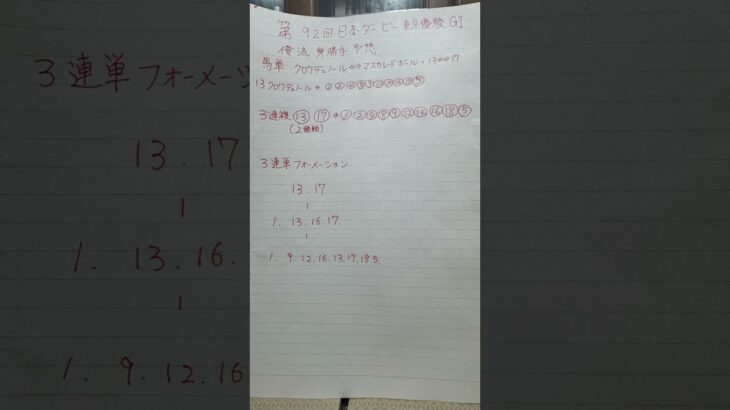 第92回日本ダービー 東京優駿 GⅠ
俺流 身勝手 予想
馬単 クロワデュノール⇔マスカレードボール・13⇔17
13 クロワデュノール→
3連複 ⑬ ⑰→①②④⑧⑨⑫⑭⑯⑱⑤
(2頭軸)
3連単 フォーメーション
13.17
1. 13.16.17.
1. 9.12.16.13.17.18 5
3連単フォーメーション
13.17
1. 13.16.
1. 9.12.16